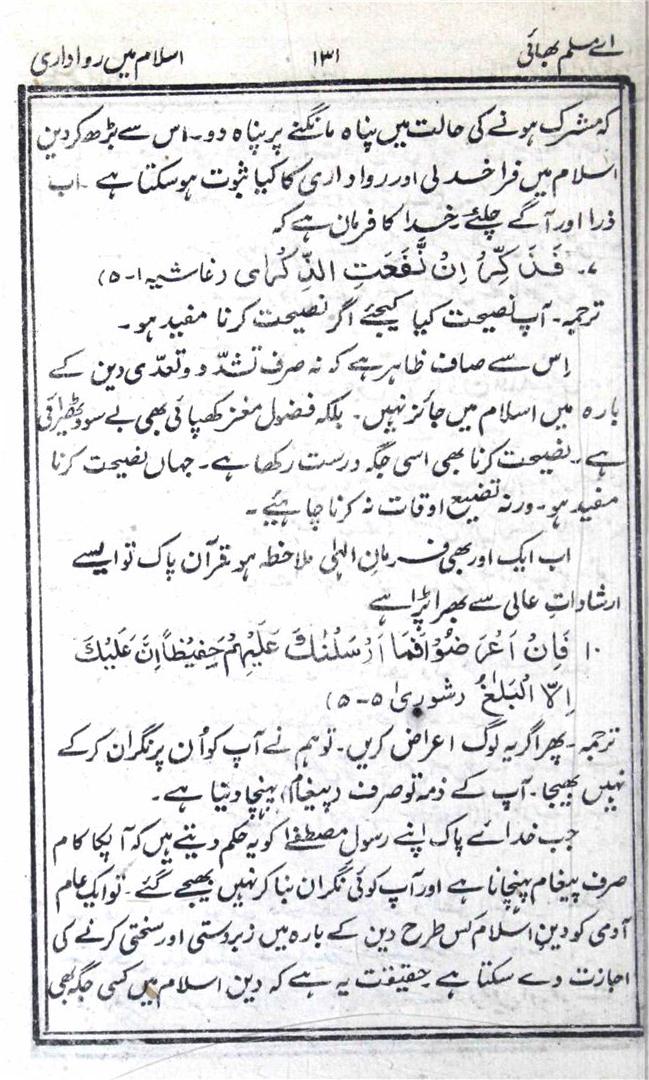 اے مسلم بھائی ۱۳۱ اسلام میں رواداری
کہ مشرک ہونے کی حالت میں پناہ مانگنے پر پناہ دو۔ اس سے بڑھ کر دین
اسلام میں فراخدلی اور رواداری کا کیا ثبوت ہو سکتا ہے ۔ اب
ذرا اور آگے چلئے خدا کا فرمان ہے کہ
فَذَ كِّرْ اِنْ نَّفَعَتِ الذِّكْرٰى (غاشیہ ۱-۵)
ترجمہ۔ آپ نصیحت کیا کیجئے اگر نصیحت کرنا مفید ہو۔
اِس سے صاف ظاہر ہے کہ نہ صرف تشدّد و تعدّی دین کے
بارہ میں اسلام میں جائز نہیں۔ بلکہ فضول مغز کھپائی بھی بے سود ٹھیرائی
ہے۔ نصیحت کرنا بھی اسی جگہ درست رکھا ہے۔ جہاں نصیحت کرنا
مفید ہو۔ ورنہ تضیع اوقات نہ کرنا چاہئیے۔
اب ایک اور بھی فرمانِ الہٰی ملاحظہ ہو قرآن پاک تو ایسے
ارشاداتِ عالی سے بھرا پڑا ہے
۱۰ فَاِنْ اَعْرَضُوْا فَمَا اَرْسَلْنٰكَ عَلَيْهِمْ حَفِيْظًا اِنْ عَلَيْكَ
اِلاَّ الْبَلٰغُ (شوریٰ ۵-۵)
ترجمہ۔ پھر اگر یہ لوگ اعراض کریں۔ تو ہم نے آپ کو اُن پر نگران کرکے
نہیں بھیجا۔ آپ کے ذمہ تو صرف (پیغام) پہنچا دینا ہے۔
جب خدائے پاک اپنے رسول مصطفٰے کو یہ حکم دیتے ہیں کہ آپکا کام
صرف پیغام پہنچانا ہے اور آپ کوئی نگران بنا کر نہیں بھیجے گئے۔ تو ایک عام
آدمی کو دینِ اسلام کس طرح دین کے بارہ میں زبردستی اور سختی کرنے کی
اجازت دے سکتا ہے حقیقت یہ ہے کہ دین اسلام میں کسی جگہ بھی